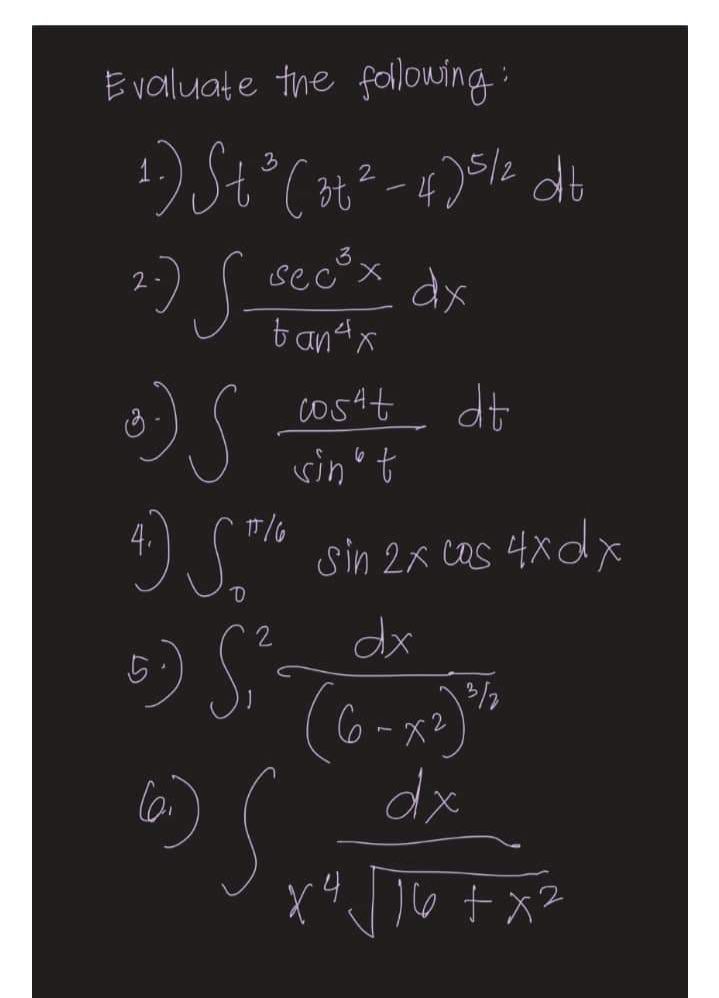 Evaluate the following:
1.) ∫t³(3t²-4)^5/2 dt
2.) ∫ sec³x / tan⁴x dx
3.) ∫ cos⁴t / sin⁶t dt
4.) ∫₀^π/6 sin 2x cos 4x dx
5.) ∫₁² dx / (6-x²)^3/2
6.) ∫ dx / x⁴√16+x²